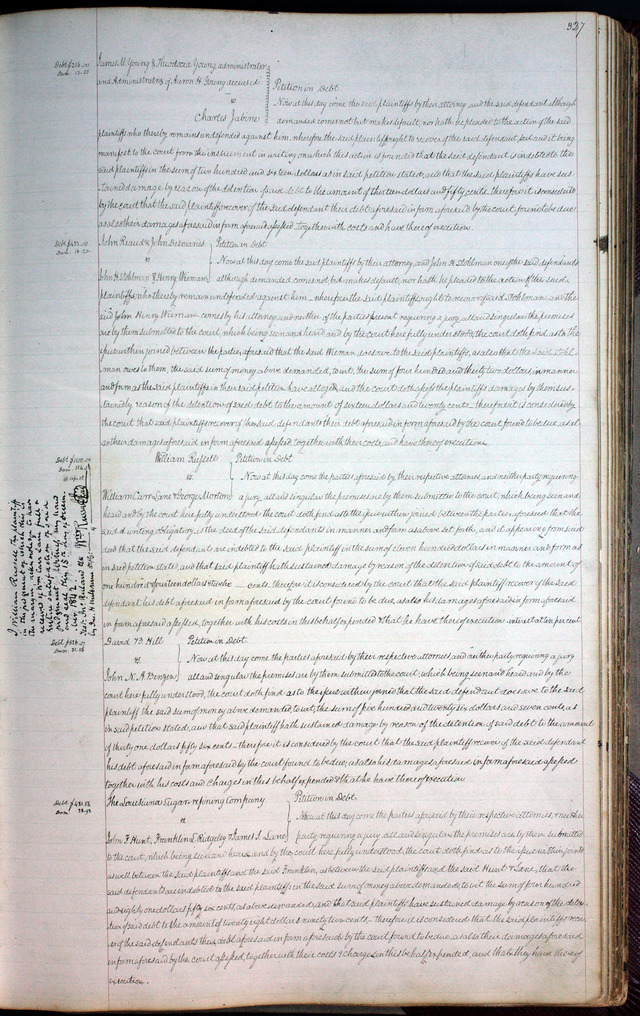 327
Debt $216.00
Dam. 13.50
James M. Young & Theodocia Young administrator
and Administratrix of Aaron H. Young deceased
vs
Charles Jabine
Petition in Debt
Now at this day come the said plaintiffs by their attorney, and the said defendant although
demanded comes not but makes default, nor hath he pleaded to the action of the said
plaintiffs who thereby remains undefended against him, wherefore the said plaintiffs ought to recover of the said defendant &c and it being
manifest to the court from the instrument in writing on which this action is founded that the said defendant is indebted to the
said plaintiffs in the sum of two hundred and sixteen dollars as in said petition stated, and that the said plaintiffs have sus
tained damage by reason of the detention of said debt to the amount of thirteen dollars and fifty cents, therefore it is considered
by the court that the said plaintiffs recover of the said defendant their debt aforesaid in form aforesaid by the court found to be due
as also their damages aforesaid in form aforesaid assessed, together with costs and have thereof execution.
Debt $432.00
Dam. 16.20
John Reaud & John Desmaries
vs
John H. Stohlman & Henry Wieman
Petition in Debt
Now at this day come the said plaintiffs by their attorney, and John H. Stohlman one of the said defendants
although demanded comes not but makes default, nor hath he pleaded to the action of the said
plaintiffs who thereby remain undefended against him – wherefore the said plaintiffs ought to recover of said Stohlman, and the
said John Henry Wiemann comes by his attorney and neither of the parties present requiring a jury, all and singular the premises
are by them submitted to the court, which being seen and heard, and by the court here fully understood, the court doth find as to the
issue within joined between the parties aforesaid that the said Wieman does owe to the said plaintiffs, as also that the said Stohl-
man owes to them, the said sum of money above demanded, to wit, the sum of four hundred and thirty two dollars, in manner
and form as the said plaintiffs in their said petition have alleged, and the court doth assess the plaintiffs damages by them sus-
tained by reason of the detention of said debt to the amount of sixteen dollars and twenty cents. therefore it is considered by
the court that said plaintiffs recover of the said defendants their debt aforesaid in form aforesaid by the court found to be due, as al
so their damages aforesaid in form aforesaid assessed, together with their costs and have thereof execution.
Dam. 114.12
William Russell
vs
William Carr Lane & George Morton
Petition in Debt
Now at this day come the parties aforesaid by their respective attornies, and neither party requiring
a jury, all and singular the premises are by them submitted to the court, which being seen and
heard and by the court here fully understood the court doth find as to the issue within joined between the parties aforesaid that the
said writing obligatory is the deed of the said defendants in manner and form as above set forth, and it appearing from said
and that the said defendants are indebted to the said plaintiff in the sum of eleven hundred dollars in manner and form as
in said petition stated, and that said plaintiff hath sustained damage by reason of the detention of said debt to the amount of
one hundred & fourteen dollars & twelve — cents, therefore it is considered by the court that the said plaintiff recover of the said de
fendant his debt aforesaid in form aforesaid by the court found to be due, as also his damages aforesaid in form aforesaid
in form aforesaid assessed, together with his costs in this behalf expended & that he have thereof execution with int at ten per cent
I William Russell the plaintiff
in the judgment of which this is
Debt $526.07
Dam. 31.56
David B. Hill
vs
Petition in Debt
Now at this day come the parties aforesaid by their respective attornies, and neither party requiring a jury
all and singular the premises are by them submitted to the court, which being seen and heard and by the
court here fully understood, the court doth find as to the issue within joined that the said defendant does owe to the said
plaintiff the said sum of money above demanded, to wit, the sum of five hundred and twenty six dollars and seven cents, as
in said petition stated, and that said plaintiff hath sustained damage by reason of the detention of said debt to the amount
of thirty one dollars fifty six cents – therefore it is considered by the court that the said plaintiff recover of the said defendant
his debt aforesaid in form aforesaid by the court found to be due, as also his damages aforesaid in form aforesaid assessed
together with his costs and charges in this behalf expended & that he have thereof execution
Debt $481.56
Dam. 28.90
The Louisiana Sugar refining Company
vs
John F. Hunt, Franklin L. Ridgeley & James S. Lane
Petition in Debt
Now at this day come the parties aforesaid by their respective attornies, & neither
party requiring a jury, all and singular the premises are by them submitted
to the court, which being seen and heard, and by the court here fully understood, the court doth find as to the issue within joined
as well between the said plaintiffs and the said Franklin, as between the said plaintiffs and the said Hunt & Lane, that the
said defendants are indebted to the said plaintiffs in the said sum of money above demanded, to wit the sum of four hundred
and eighty one dollars fifty six cents, as above demanded, and that said plaintiffs have sustained damage by reason of the deten
tion of said debt to the amount of twenty eight dollars ninety two cents – Therefore it is considered that the said plaintiffs recov
er of the said defendants their debt aforesaid in form aforesaid by the court found to be due, as also their damages aforesaid
in form aforesaid by the court assessed, together with their costs & charges in this behalf expended, and that they have thereof
execution.